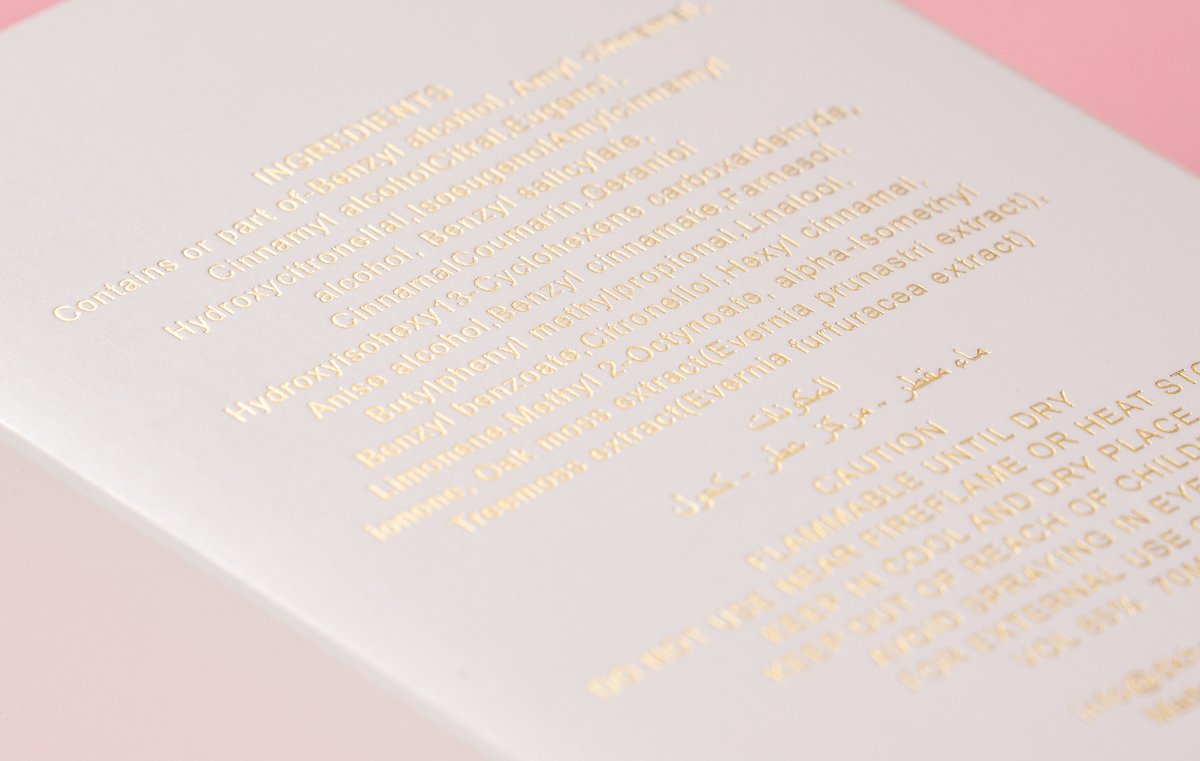 INGREDIENTS
Contains or part of-Benzyl alcohol, Amyl cinnamal,
Cinnamyl alcoholCitral,Eugenol,
Hydroxycitronellal,IsoeugenolAmylcinnamyl
alcohol, Benzyl salicylate,
CinnamalCoumarin,Geraniol
Hydroxyisohexy13-Cyclohexene carboxaldehyde,
Anise alcohol,Benzyl cinnamate,Farnesol,
Butylphenyl methylpropional,Linalool,
Benzyl benzoate,Citronellol,Hexyl cinnamal,
Limonene,Methyl 2-Octynoate, alpha-Isomethyl
Ionone, Oak moss extract(Evernia prunastri extract),
Treemoss extract(Evernia furfuracea extract)
المكونات
ماء مقطر - مركز عطر - كحول
CAUTION
FLAMMABLE UNTIL DRY
DO NOT USE NEAR FIREFLAME OR HEAT
KEEP IN COOL AND DRY PLACE
KEEP OUT OF REACH OF
AVOID SPRAYING IN
FOR EXTERNAL USE
VOL 85%